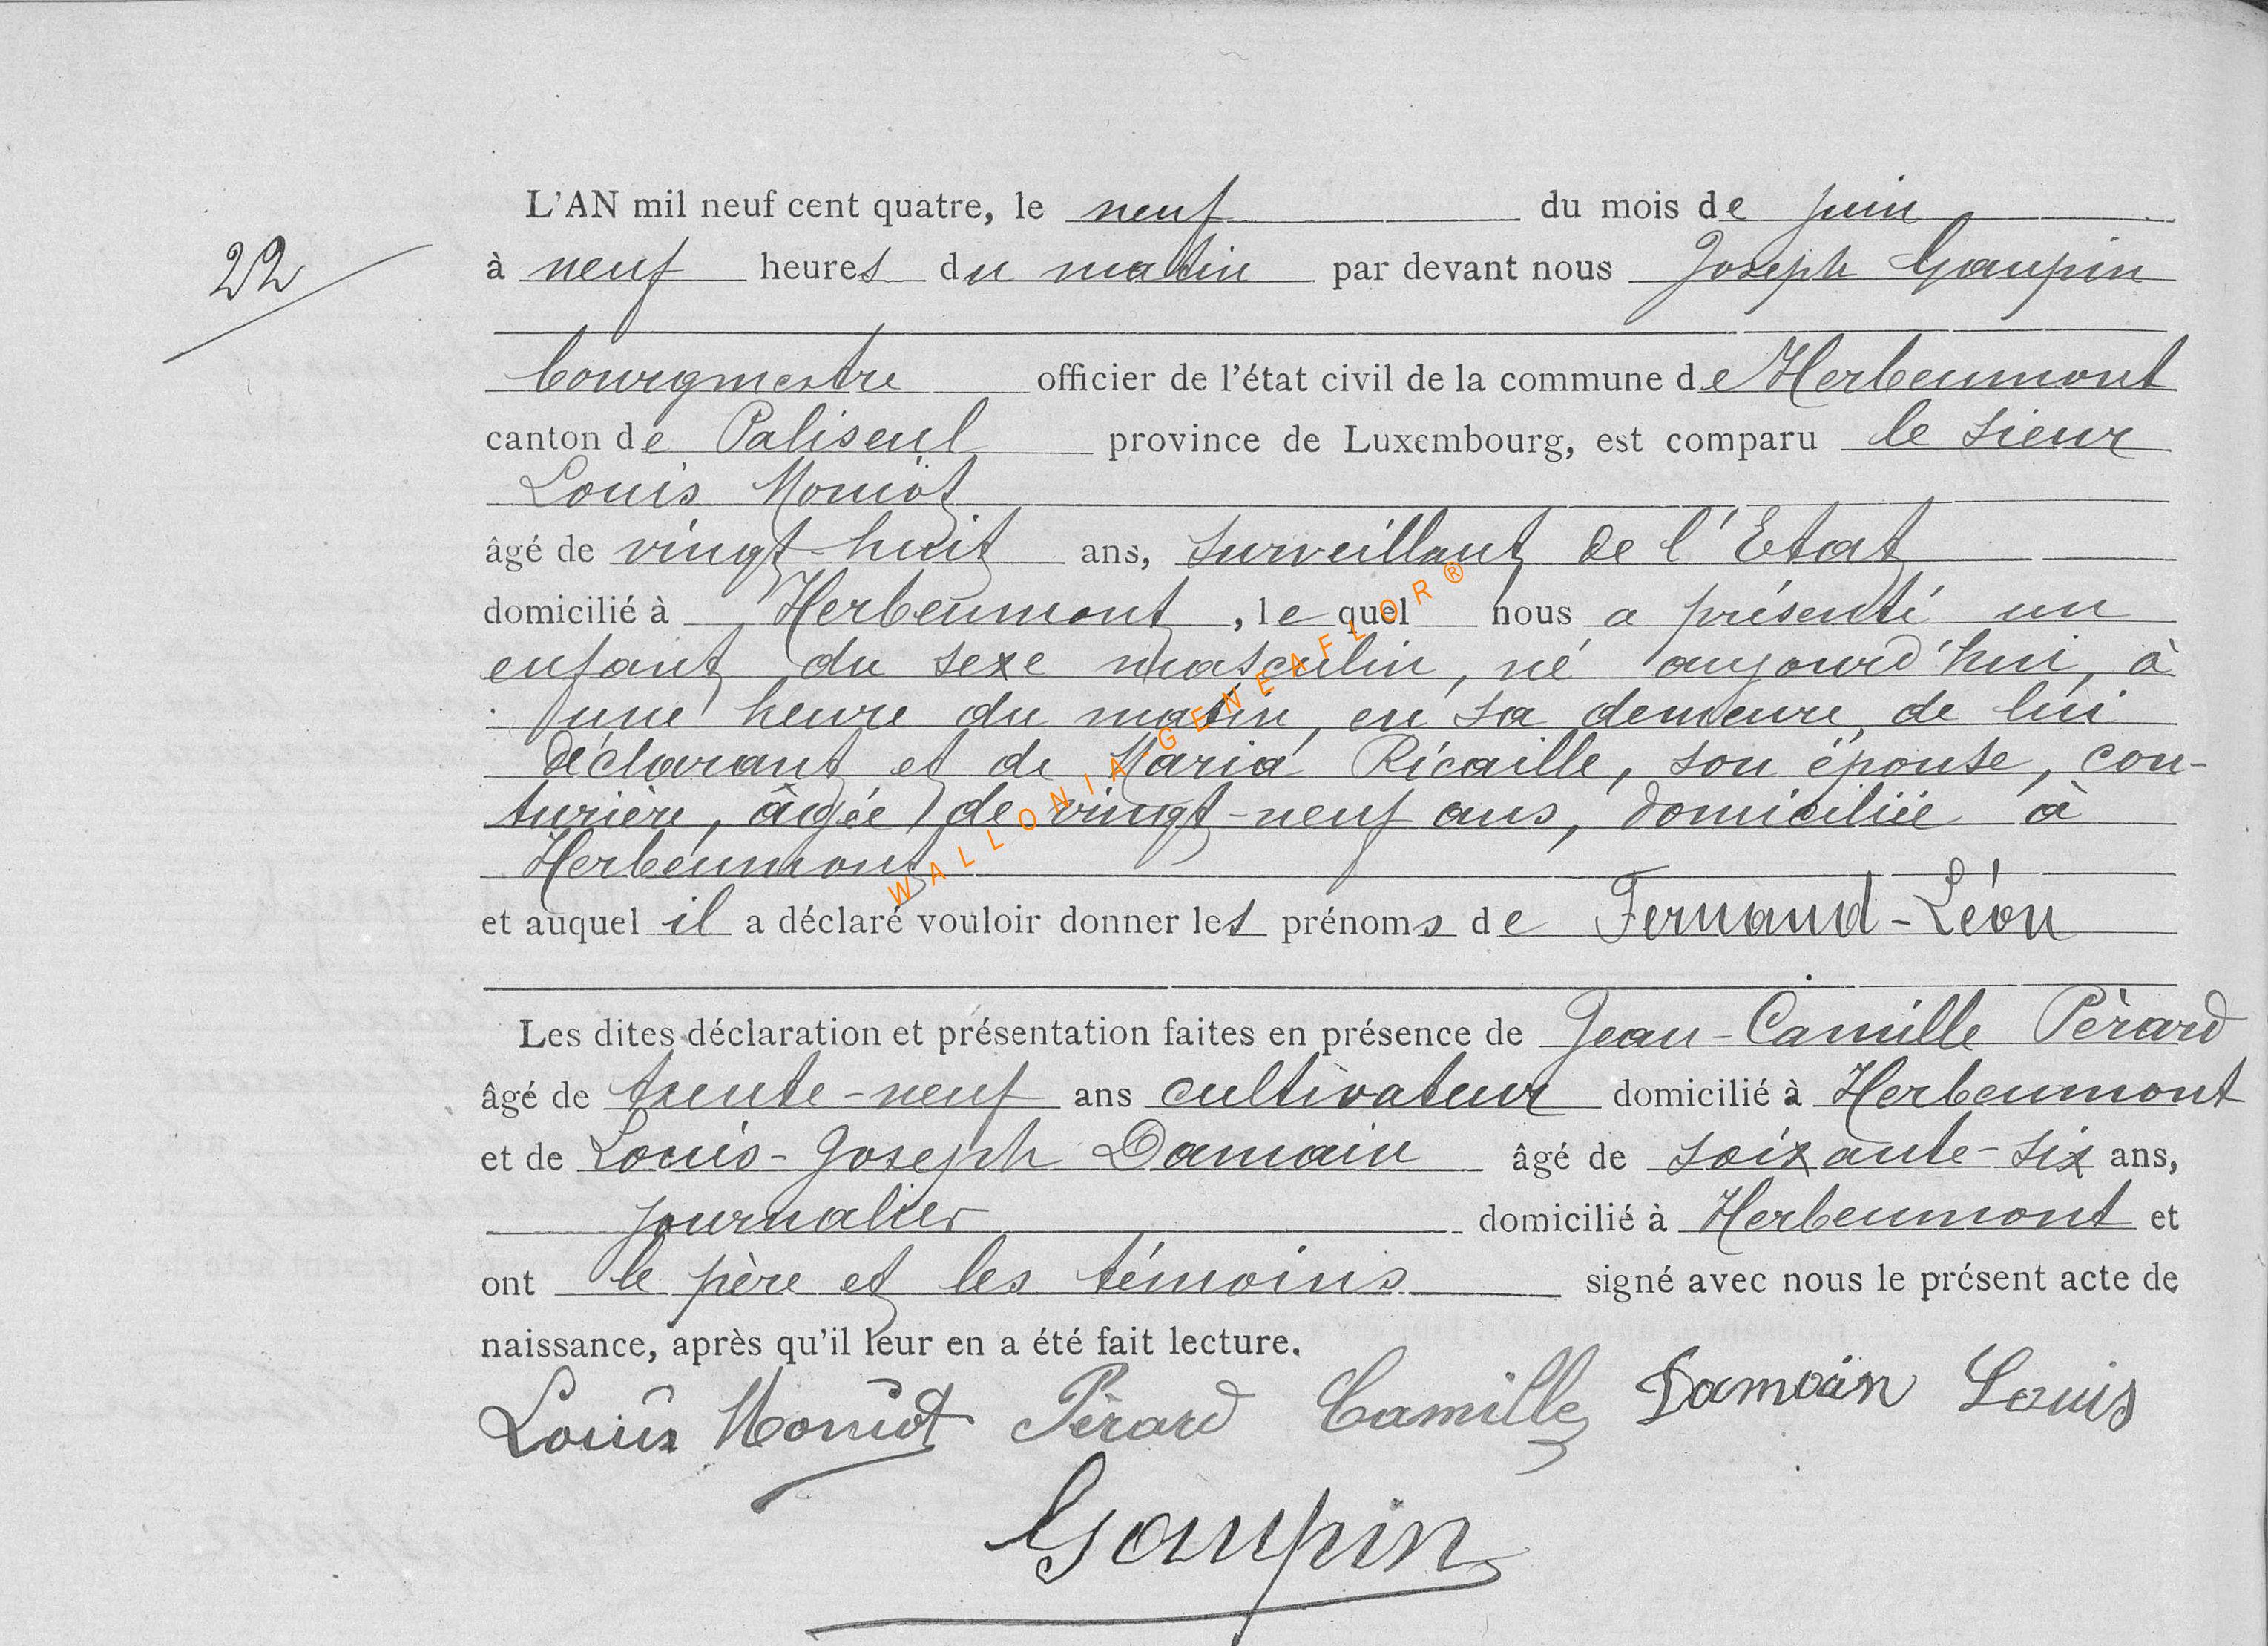 L'AN mil neuf cent quatre, le neuf du mois de juin
22
à neuf heures du matin par devant nous Joseph Gaupin
bourgmestre officier de l'état civil de la commune de Herbeumont
canton de Paliseul province de Luxembourg, est comparu le sieur
Louis Moniot
âgé de vingt-huit ans, surveillant de l'Etat
domicilié à Herbeumont, lequel nous a présenté un
enfant du sexe masculin, né aujourd'hui, à
une heure du matin, en sa demeure, de lui
déclarant et de Maria Ricaille, son épouse, cou-
turière, âgée de vingt-neuf ans, domiciliée à
Herbeumont
et auquel il a déclaré vouloir donner les prénoms de Fernand-Léon
Les dites déclaration et présentation faites en présence de Jean-Camille Pèrard
âgé de trente-neuf ans cultivateur domicilié à Herbeumont
et de Louis-Joseph Damain âgé de soixante-six ans,
journalier domicilié à Herbeumont et
ont le père et les témoins signé avec nous le présent acte de
naissance, après qu'il leur en a été fait lecture.
Louis Moniot Pèrard Camille Damain Louis
Gaupin
WALLONIA-GENEAFLOR®